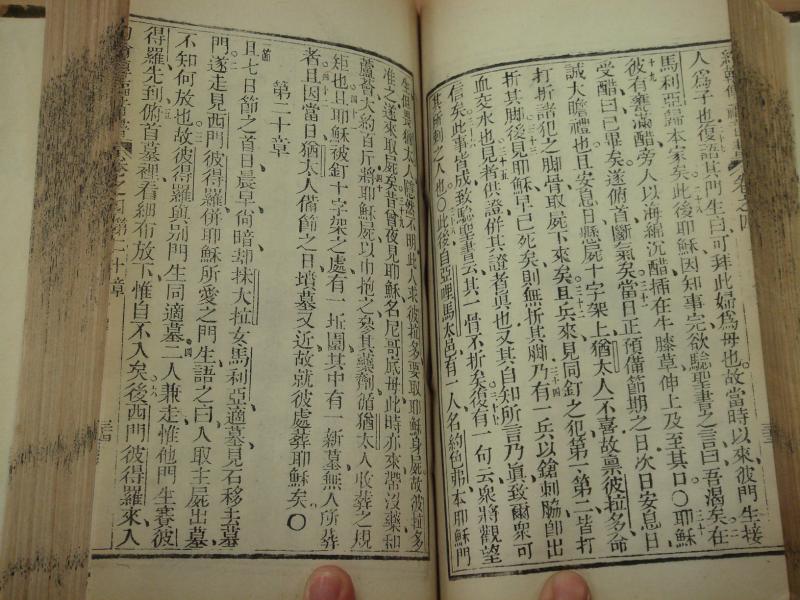 卷之四
人為子也復語其門生曰可拜此婦為母也故當時以來彼門生接
馬利亞歸本家矣此後耶穌因知事完欲驗聖書之言曰吾渴矣在
彼有甕滿醋旁人以海綿沉醋插在牛膝草伸上及至其口○耶穌
受醋曰已畢矣遂俯首斷氣矣當日正預備節期之日次日安息日
誠大瞻禮也且安息日懸屍十字架上猶太人不喜故稟彼拉多命
打折諸犯之脚骨取屍下來矣且兵來見同釘之犯第一第二皆打
折其脚後見耶穌早已死矣則無折其脚乃有一兵以鎗刺脇即出
血並水也見者供證併其證者真也又其自知所言乃真致爾衆可
信矣此事皆成致驗聖書云其一骨不折矣後有一句云衆將觀望
其所刺之人也○此後自亞哩馬太邑有一人名約色弗本耶穌門
生但畏猶太人隱然不明此人求彼拉多要取耶穌身屍故彼拉多
准之遂來取屍矣昔曾夜見耶穌名尼哥底母此時亦來帶沒藥和
蘆薈大約百斤將耶穌屍以巾抱之參其藥劑循猶太人收葬之規
矩也且耶穌被釘十字架之處有一坵園其中有一新墓無人所葬
者且因當日猶太人備節之日墳墓又近故就彼處葬耶穌矣○
第二十章
節
且七日節之首日晨早尚暗却抹大拉女馬利亞適墓見石移去墓
門遂走見西門彼得羅併耶穌所愛之門生語之曰人取主屍出墓
不知何放也故彼得羅與別門生同適墓二人兼走惟他門生賽彼
得羅先到俯首墓裡看細布放下惟自不入矣後西門彼得羅來入
卷之四第二十章